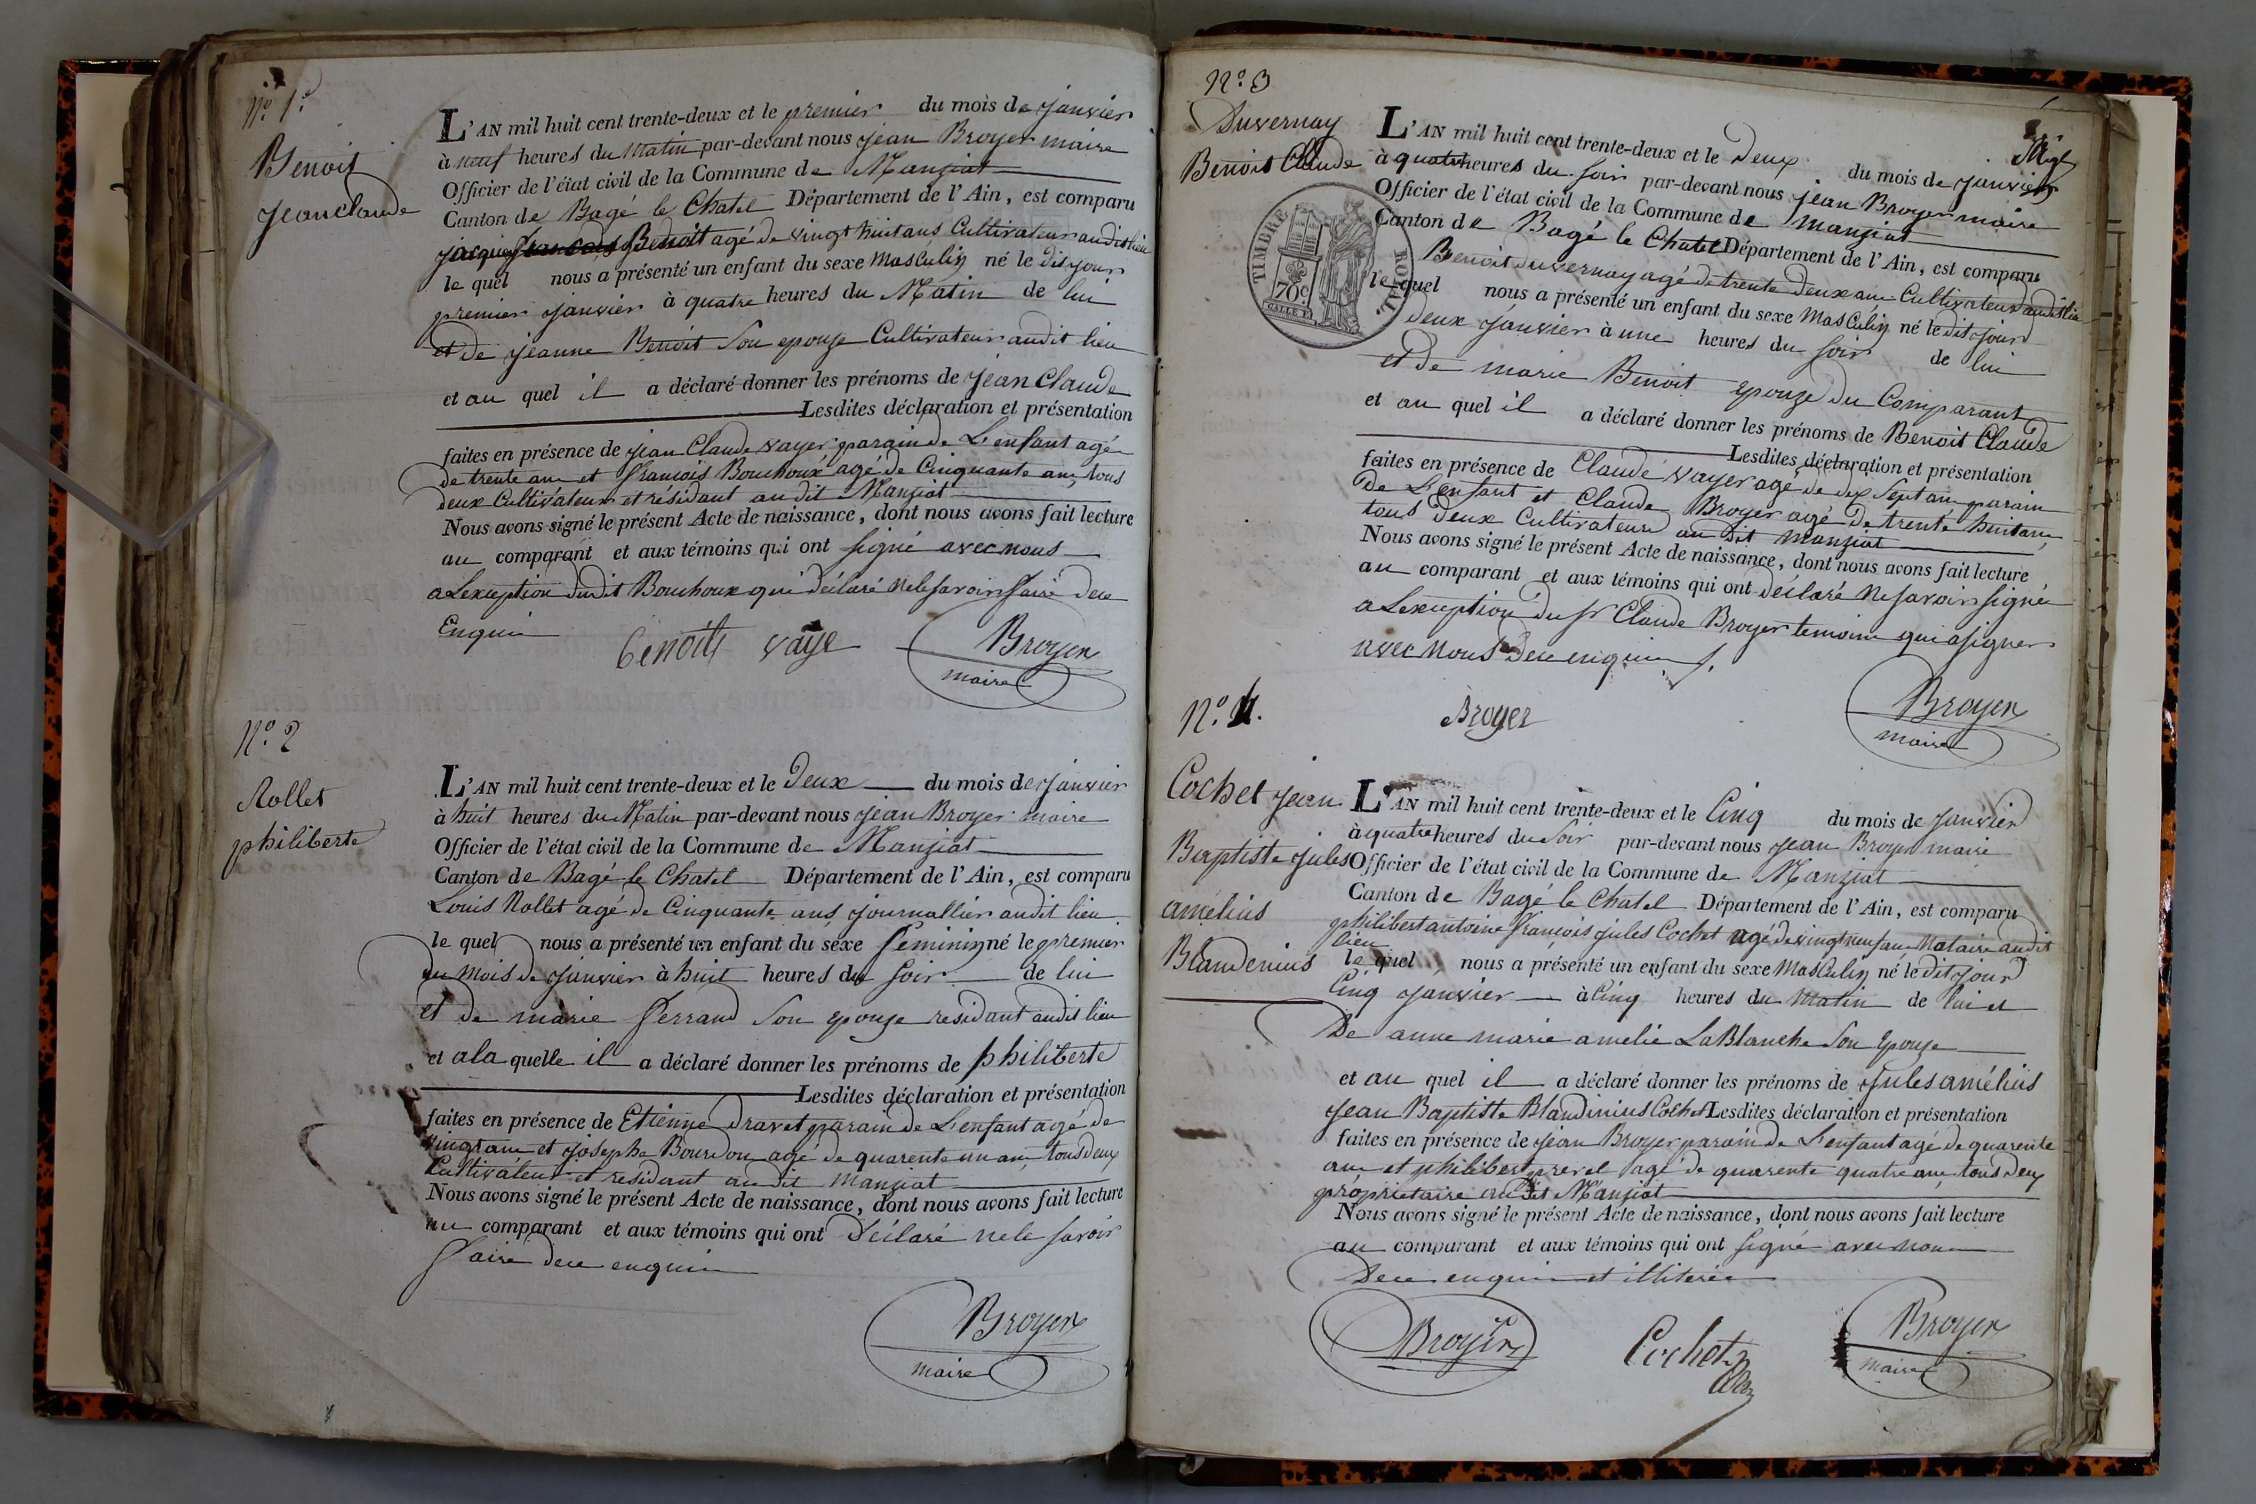 N.o 1.er
Benoit
Jean Claude
L'AN mil huit cent trente-deux et le premier du mois de janvier
à neuf heures du Matin par-devant nous jean Broyer maire
Officier de l'état civil de la Commune de Manziat
Canton de Bagé le Chatel Département de l'Ain, est comparu
jacque Benoit agé de vingt huit ans Cultivateur audit lieu
le quel nous a présenté un enfant du sexe Masculin né le dit jour
premier janvier à quatre heures du Matin de lui
et de jeanne Benoit Son epouze Cultivateur audit lieu
et au quel il a déclaré donner les prénoms de jean Claude
Lesdites déclaration et présentation
faites en présence de jean Claude vayer parain de L'enfant agé
de trente ans et francois Bouchoux agé de Cinquante ans tous
deux Cultivateur et residant au dit Manziat
Nous avons signé le présent Acte de naissance, dont nous avons fait lecture
au comparant et aux témoins qui ont signé avec nous
a Lexception dudit Bouchoux qui déclaré nele savoir faire dece
Enquis
benoit vaye Broyer
maire
N.o 2
Rollet
philiberte
L'AN mil huit cent trente-deux et le Deux du mois de janvier
à huit heures du Matin par-devant nous jean Broyer maire
Officier de l'état civil de la Commune de Manziat
Canton de Bagé le Chatel Département de l'Ain, est comparu
Louis Rollet agé de Cinquante ans journallier audit lieu
le quel nous a présenté un enfant du sexe feminin né le premier
du mois de janvier à huit heures du soir de lui
et de marie ferrand son epouze residant audit lieu
et a la quelle il a déclaré donner les prénoms de philiberte
Lesdites déclaration et présentation
faites en présence de Etienne Dravet parain de L'enfant agé de
vingt ans et josephe Bourdon agé de quarente un ans tous deux
Cultivateur et residant au dit Manziat
Nous avons signé le présent Acte de naissance, dont nous avons fait lecture
au comparant et aux témoins qui ont déclaré nele savoir
faire dece enquis
Broyer
maire
N.o 3
Duvernay
Benoit Claude
TIMBRE ROYAL
70c.
L'AN mil huit cent trente-deux et le Deux du mois de janvier
à quatre heures du soir par-devant nous jean Broyer maire
Officier de l'état civil de la Commune de Manziat
Canton de Bagé le Chatel Département de l'Ain, est comparu
Benoit duvernay agé de trente deux ans Cultivateur audit lieu
le quel nous a présenté un enfant du sexe Masculin né le dit jour
deux janvier à une heures du soir de lui
et de marie Benoit epouze du Comparant
et au quel il a déclaré donner les prénoms de Benoit Claude
Lesdites déclaration et présentation
faites en présence de Claude vayer agé de dix Sept ans parain
de L'enfant et Claude Broyer agé de trente huit ans
tous deux Cultivateurs au dit manziat
Nous avons signé le présent Acte de naissance, dont nous avons fait lecture
au comparant et aux témoins qui ont déclaré ne savoir signé
a Lexception du sr Claude Broyer temoins qui a signer
avec nous dece enquis
Broyer Broyer
maire
N.o 4.
Cochet jean
Baptiste jules
amélius
Blandenius
L'AN mil huit cent trente-deux et le Cinq du mois de janvier
à quatre heures du soir par-devant nous jean Broyer maire
Officier de l'état civil de la Commune de Manziat
Canton de Bagé le Chatel Département de l'Ain, est comparu
philibert antoine francois jules Cochet agé de vingt neuf ans Notaire audit
lieu
le quel nous a présenté un enfant du sexe Masculin né le dit jour
Cinq janvier à Cinq heures du Matin de lui et
De anne marie amelie LaBlanche Son Epouze
et au quel il a déclaré donner les prénoms de jules amélius
jean Baptiste Blandinius Cochet Lesdites déclaration et présentation
faites en présence de jean Broyer parain de L'enfant agé de quarente
ans et philibert prevel agé de quarente quatre ans tous deux
propriétaire au dit Manziat
Nous avons signé le présent Acte de naissance, dont nous avons fait lecture
au comparant et aux témoins qui ont signé avec nous
Dece enquis et
Broyer Cochet Broyer
maire